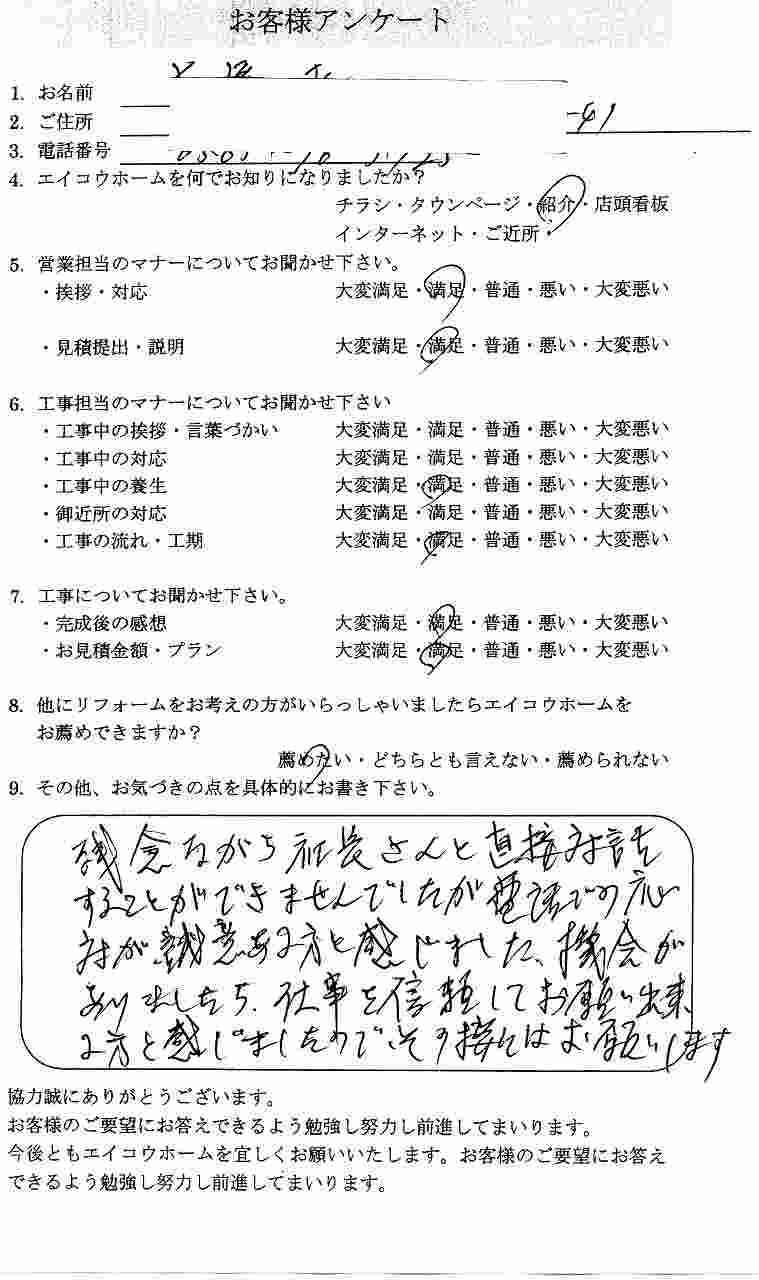 お客様アンケート
1. お名前
2. ご住所
3. 電話番号
4. エイコウホームを何でお知りになりましたか？
チラシ・タウンページ・紹介・店頭看板
インターネット・ご近所・
5. 営業担当のマナーについてお聞かせ下さい。
・挨拶・対応 大変満足・満足・普通・悪い・大変悪い
・見積提出・説明 大変満足・満足・普通・悪い・大変悪い
6. 工事担当のマナーについてお聞かせ下さい
・工事中の挨拶・言葉づかい 大変満足・満足・普通・悪い・大変悪い
・工事中の対応 大変満足・満足・普通・悪い・大変悪い
・工事中の養生 大変満足・満足・普通・悪い・大変悪い
・御近所の対応 大変満足・満足・普通・悪い・大変悪い
・工事の流れ・工期 大変満足・満足・普通・悪い・大変悪い
7. 工事についてお聞かせ下さい。
・完成後の感想 大変満足・満足・普通・悪い・大変悪い
・お見積金額・プラン 大変満足・満足・普通・悪い・大変悪い
8. 他にリフォームをお考えの方がいらっしゃいましたらエイコウホームを
お薦めできますか？
薦めたい・どちらとも言えない・薦められない
9. その他、お気づきの点を具体的にお書き下さい。
残念ながら社長さんと直接対話を
することができませんでしたが電話での応
対が誠意ある方と感じました、機会が
ありましたら、仕事を信頼してお願い出来
る方と感じましたので、その接はお願いします
協力誠にありがとうございます。
お客様のご要望にお答えできるよう勉強し努力し前進してまいります。
今後ともエイコウホームを宜しくお願いいたします。お客様のご要望にお答え
できるよう勉強し努力し前進してまいります。